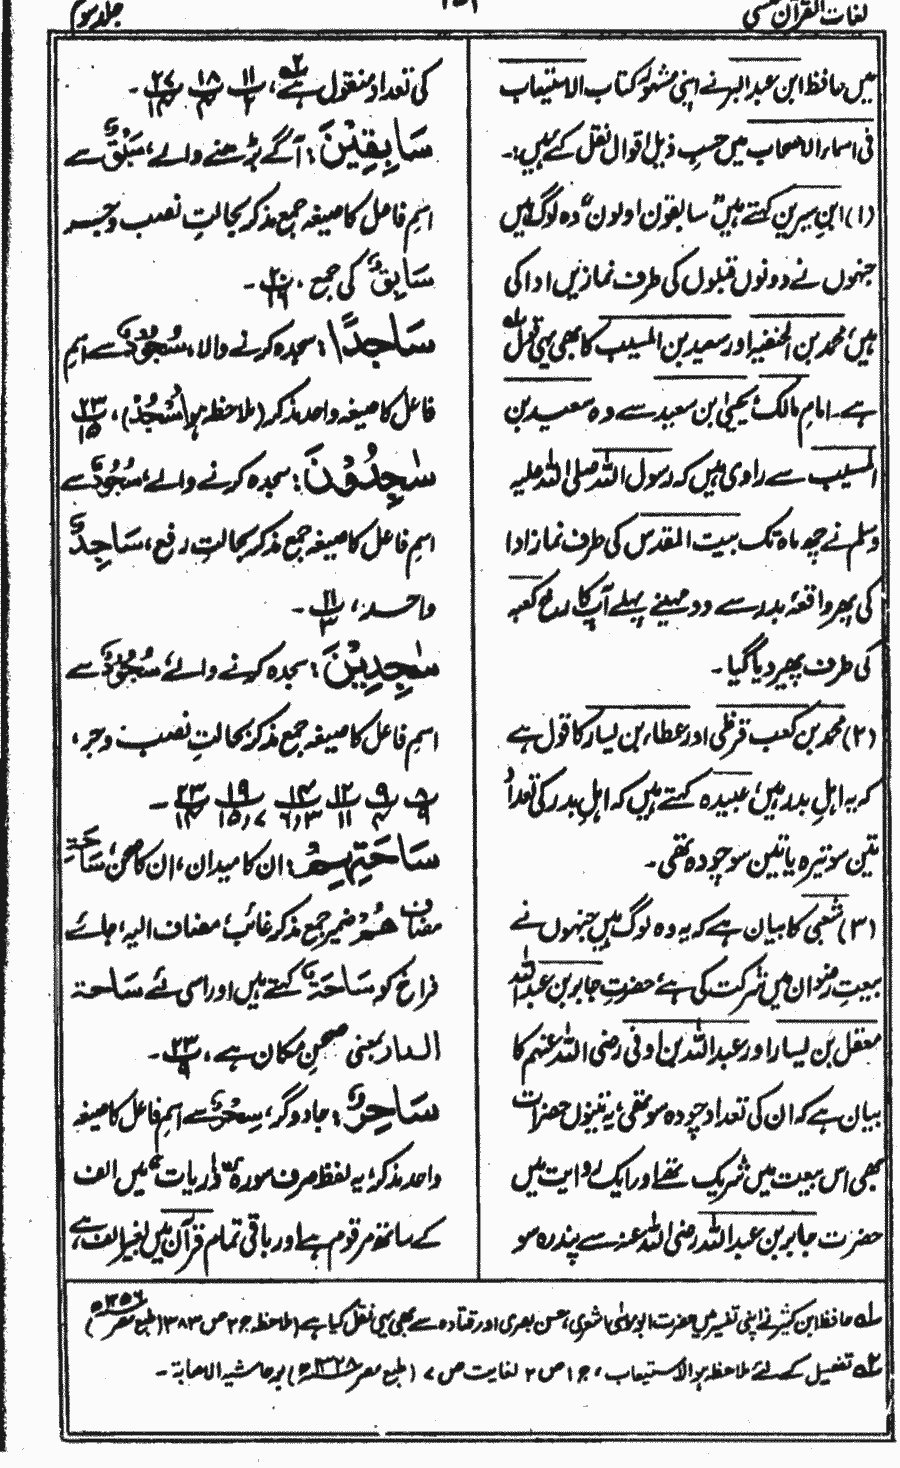 لغات القرآن
جلد سوم
میں حافظ ابن عبد البر نے اپنی مشہور کتاب الاستیعاب
فی اسماء الاصحاب میں حسب ذیل اقوال نقل کئے ہیں :۔
(۱) ابن سیرین کہتے ہیں "سابقون اولون" وہ لوگ ہیں
جنہوں نے دونوں قبلوں کی طرف نمازیں ادا کی
ہیں، محمد بن الحنفیہ اور سعید بن المسیب کا بھی یہی قول
ہے۔ امام مالک، یحییٰ بن سعید سے وہ سعید بن
المسیب سے راوی ہیں کہ رسول اللہ صلی اللہ علیہ
وسلم نے چھ ماہ تک بیت المقدس کی طرف نماز ادا
کی پھر واقعہ بدر سے دو مہینے پہلے آپ کا رخ کعبہ
کی طرف پھیر دیا گیا۔
(۲) محمد بن کعب قرظی اور عطاء بن یسار کا قول ہے
کہ یہ اہل بدر ہیں، عبیدہ کہتے ہیں کہ اہل بدر کی تعداد
تین سو تیرہ یا تین سو چودہ تھی۔
(۳) شعبی کا بیان ہے کہ یہ وہ لوگ ہیں جنہوں نے
بیعت رضوان میں شرکت کی ہے، حضرت جابر بن عبد اللہ
معقل بن یسار اور عبد اللہ بن اوفی رضی اللہ عنہم کا
بیان ہے کہ ان کی تعداد چودہ سو تھی، یہ تینوں حضرات
بھی اس بیعت میں شریک تھے اور ایک روایت میں
حضرت جابر بن عبد اللہ رضی اللہ عنہ سے پندرہ سو
کی تعداد منقول ہے، ۱۱/۲ ۱۸/۳ ۲۷/۱۴۔
سَابِقِیْنَ : آگے بڑھنے والے، سَبْقٌ سے
اسم فاعل کا صیغہ جمع مذکر بحالت نصب و جر
سَابِقٌ کی جمع، ۲۰/۱۶۔
سَاجِدًا : سجدہ کرنے والا، سُجُوْدٌ سے اسم
فاعل کا صیغہ واحد مذکر (ملاحظہ ہو اُسْجُدْ)، ۲۳/۱۵
سٰجِدُوْنَ : سجدہ کرنے والے، سُجُوْدٌ سے
اسم فاعل کا صیغہ جمع مذکر بحالت رفع، سَاجِدٌ
واحد، ۱۱/۳۔
سٰجِدِیْنَ : سجدہ کرنے والے، سُجُوْدٌ سے
اسم فاعل کا صیغہ جمع مذکر بحالت نصب و جر،
۸/۹ ۹/۴ ۱۲/۱۱ ۱۴/۶،۳ ۱۹/۱۵،۷ ۲۳/۱۴۔
سَاحَتِہِمْ : ان کا میدان، ان کا صحن، سَاحَۃِ
مضاف ھُمْ ضمیر جمع مذکر غائب، مضاف الیہ، جائے
فراخ کو سَاحَۃٌ کہتے ہیں اور اسی لئے ساحۃ
الدار بمعنی صحن مکان ہے، ۲۳/۹۔
سَاحِرٌ : جادوگر، سِحْرٌ سے اسم فاعل کا صیغہ
واحد مذکر، یہ لفظ صرف سورہ "ذاریات" میں الف
کے ساتھ مرقوم ہے اور باقی تمام قرآن میں بغیر الف ہے،
۱؎ حافظ ابن کثیر نے اپنی تفسیر میں حضرت ابو موسیٰ اشعری، حسن بصری اور قتادہ سے بھی یہی نقل کیا ہے (ملاحظہ ج ۲ ص ۳۸۳ (طبع مصر ۱۳۵۶ھ)
۲؎ تفصیل کے لئے ملاحظہ ہو الاستیعاب، ج ۱ ص ۲ لغایت ص ۷ (طبع مصر ۱۳۲۸ھ) بر حاشیہ الاصابۃ۔